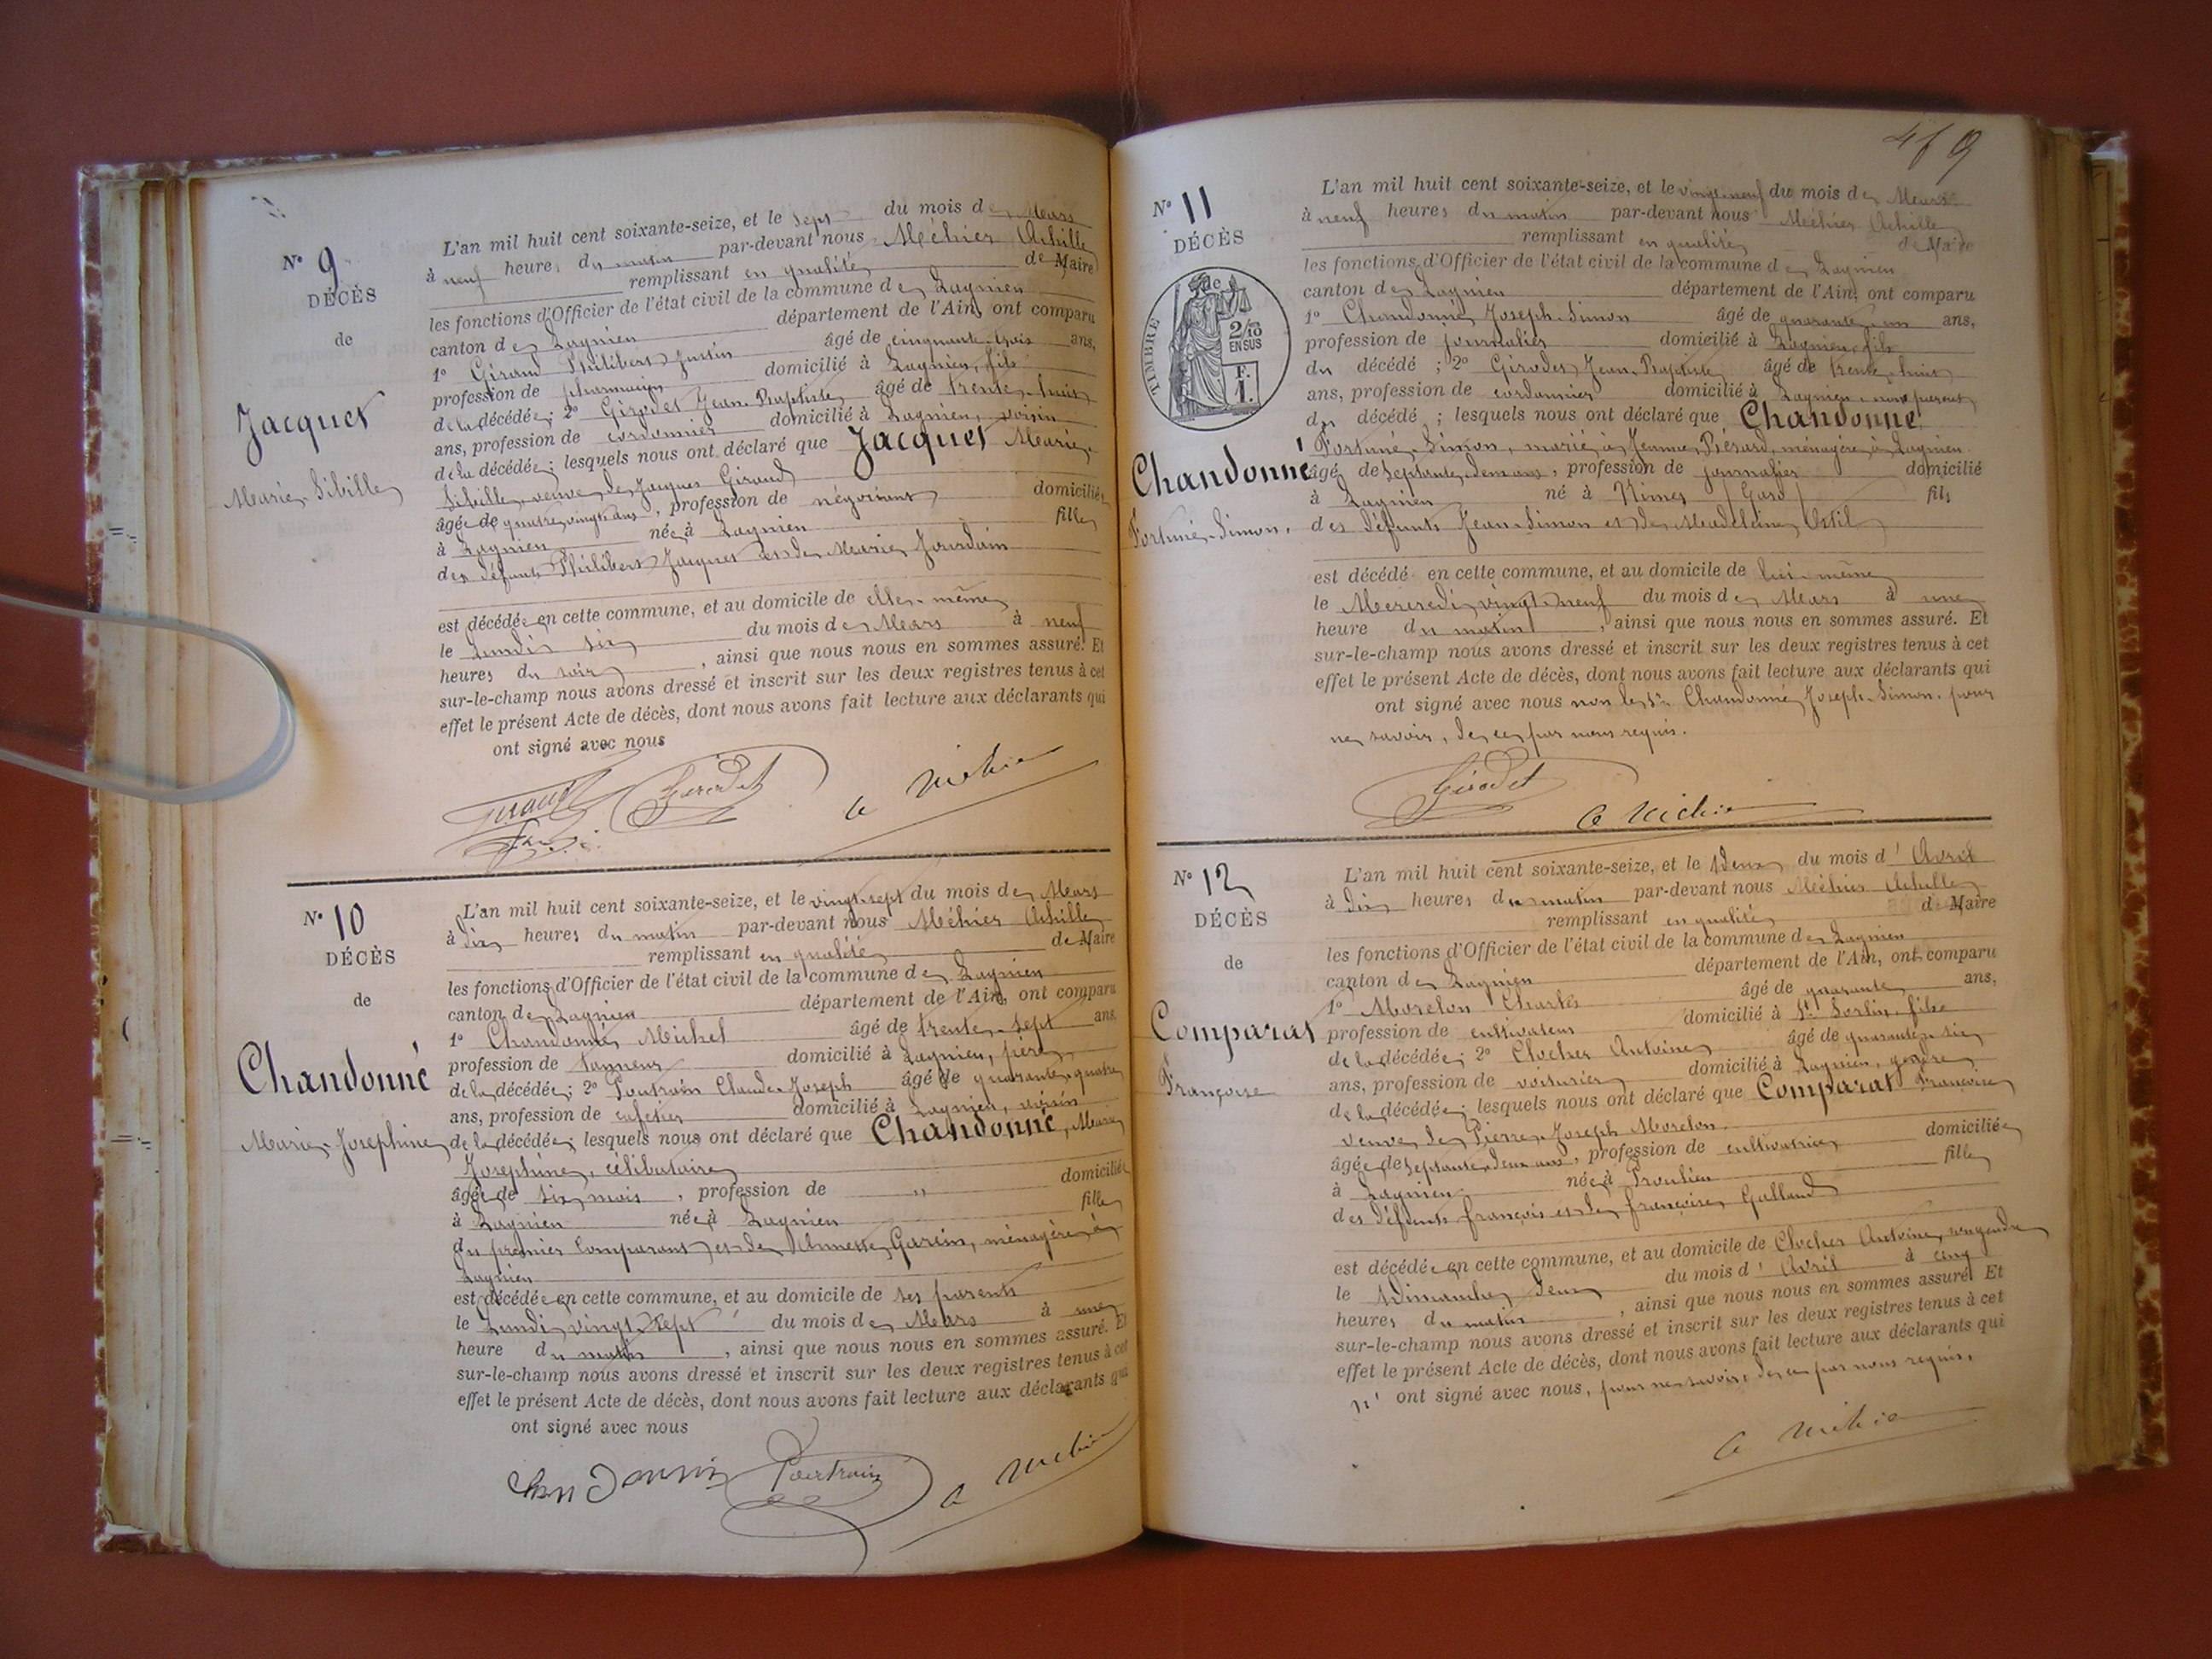 N° 9
DÉCÈS
de
Jacquet
Marie-Sibille
L'an mil huit cent soixante-seize, et le sept du mois de Mars
à neuf heures du matin par-devant nous Méhier Achille
remplissant en qualité de Maire
les fonctions d'Officier de l'état civil de la commune de Lagnieu
canton de Lagnieu département de l'Ain, ont comparu
1° Giraud Philibert Justin âgé de cinquante-trois ans,
profession de pharmacien domicilié à Lagnieu, fils
de la décédée; 2° Girodet Jean-Baptiste âgé de trente-huit
ans, profession de cordonnier domicilié à Lagnieu, voisin
de la décédée; lesquels nous ont déclaré que Jacquet Marie-
Sibille, veuve de Jacques Giraud
âgée de quatre-vingts ans, profession de négociant domiciliée
à Lagnieu née à Lagnieu fille
des défunts Philibert Jacquet et de Marie Jourdain
est décédée en cette commune, et au domicile de elle-même
le Lundi six du mois de Mars à neuf
heures du soir, ainsi que nous nous en sommes assuré. Et
sur-le-champ nous avons dressé et inscrit sur les deux registres tenus à cet
effet le présent Acte de décès, dont nous avons fait lecture aux déclarants qui
ont signé avec nous
Giraud Girodet A Méhier
N° 10
DÉCÈS
de
Chandonné
Marie-Josephine
L'an mil huit cent soixante-seize, et le vingt-sept du mois de Mars
à dix heures du matin par-devant nous Méhier Achille
remplissant en qualité de Maire
les fonctions d'Officier de l'état civil de la commune de Lagnieu
canton de Lagnieu département de l'Ain, ont comparu
1° Chandonné Michel âgé de trente-sept ans.
profession de tanneur domicilié à Lagnieu, père
de la décédée; 2° Poutrain Claude-Joseph âgé de quarante-quatre
ans, profession de cafetier domicilié à Lagnieu, voisin
de la décédée; lesquels nous ont déclaré que Chandonné, Marie
Josephine, célibataire
âgée de six mois, profession de " domiciliée
à Lagnieu née à Lagnieu fille
du premier Comparant et de Annette Garin, ménagère à
Lagnieu
est décédée en cette commune, et au domicile de ses parents
le Lundi vingt-sept du mois de Mars à une
heure du matin, ainsi que nous nous en sommes assuré. Et
sur-le-champ nous avons dressé et inscrit sur les deux registres tenus à cet
effet le présent Acte de décès, dont nous avons fait lecture aux déclarants qui
ont signé avec nous
Poutrain A Méhier
N° 11
DÉCÈS
TIMBRE
2/10
EN SUS
F.
1.
Chandonné
Fortuné-Simon.
L'an mil huit cent soixante-seize, et le vingt-neuf du mois de Mars
à neuf heures du matin par-devant nous Méhier Achille
remplissant en qualité de Maire
les fonctions d'Officier de l'état civil de la commune de Lagnieu
canton de Lagnieu département de l'Ain, ont comparu
1° Chandonné Joseph-Simon âgé de quarante-un ans,
profession de journalier domicilié à Lagnieu, fils
du décédé; 2° Girodet Jean-Baptiste âgé de trente-huit
ans, profession de cordonnier domicilié à Lagnieu, non parent
du décédé; lesquels nous ont déclaré que Chandonné
Fortuné-Simon, marié à Jeanne Pérard, ménagère à Lagnieu
âgé de Septante-deux ans, profession de journalier domicilié
à Lagnieu né à Nimes (Gard) fils
des défunts Jean-Simon et de Madeleine Ostil
est décédé en cette commune, et au domicile de lui-même
le Mercredi vingt-neuf du mois de Mars à une
heure du matin, ainsi que nous nous en sommes assuré. Et
sur-le-champ nous avons dressé et inscrit sur les deux registres tenus à cet
effet le présent Acte de décès, dont nous avons fait lecture aux déclarants qui
ont signé avec nous non le Sr. Chandonné Joseph-Simon, pour
ne savoir, de ce par nous requis.
Girodet A Méhier
N° 12
DÉCÈS
de
Comparat
Françoise
L'an mil huit cent soixante-seize, et le Deux du mois d'Avril
à dix heures du matin par-devant nous Méhier Achille
remplissant en qualité de Maire
les fonctions d'Officier de l'état civil de la commune de Lagnieu
canton de Lagnieu département de l'Ain, ont comparu
1° Morelon Charles âgé de quarante ans,
profession de cultivateur domicilié à St Sorlin, fils
de la décédée; 2° Clocher Antoine âgé de quarante-six
ans, profession de voiturier domicilié à Lagnieu, gendre
de la décédée; lesquels nous ont déclaré que Comparat Françoise
veuve de Pierre-Joseph Morelon.
âgée de Septante-deux ans, profession de cultivatrice domiciliée
à Lagnieu née à Proulieu fille
des défunts François et de Françoise Galland
est décédée en cette commune, et au domicile de Clocher Antoine, son gendre
le Dimanche deux du mois d'Avril à cinq
heures du matin, ainsi que nous nous en sommes assuré. Et
sur-le-champ nous avons dressé et inscrit sur les deux registres tenus à cet
effet le présent Acte de décès, dont nous avons fait lecture aux déclarants qui
n' ont signé avec nous, pour ne savoir, de ce par nous requis.
A Méhier